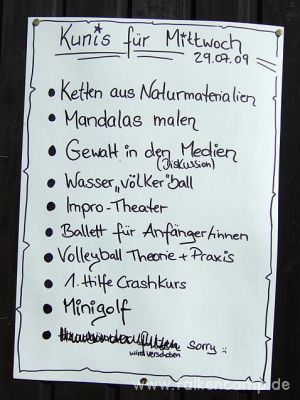 Kunis für Mittwoch
29.07.09
• Ketten aus Naturmaterialien
• Mandalas malen
• Gewalt in den Medien
(Diskussion)
• Wasser„völker"ball
• Impro-Theater
• Ballett für Anfänger/innen
• Volleyball Theorie + Praxis
• 1. Hilfe Crashkurs
• Minigolf
• sorry :
wird verschoben
www.falkencamp.de